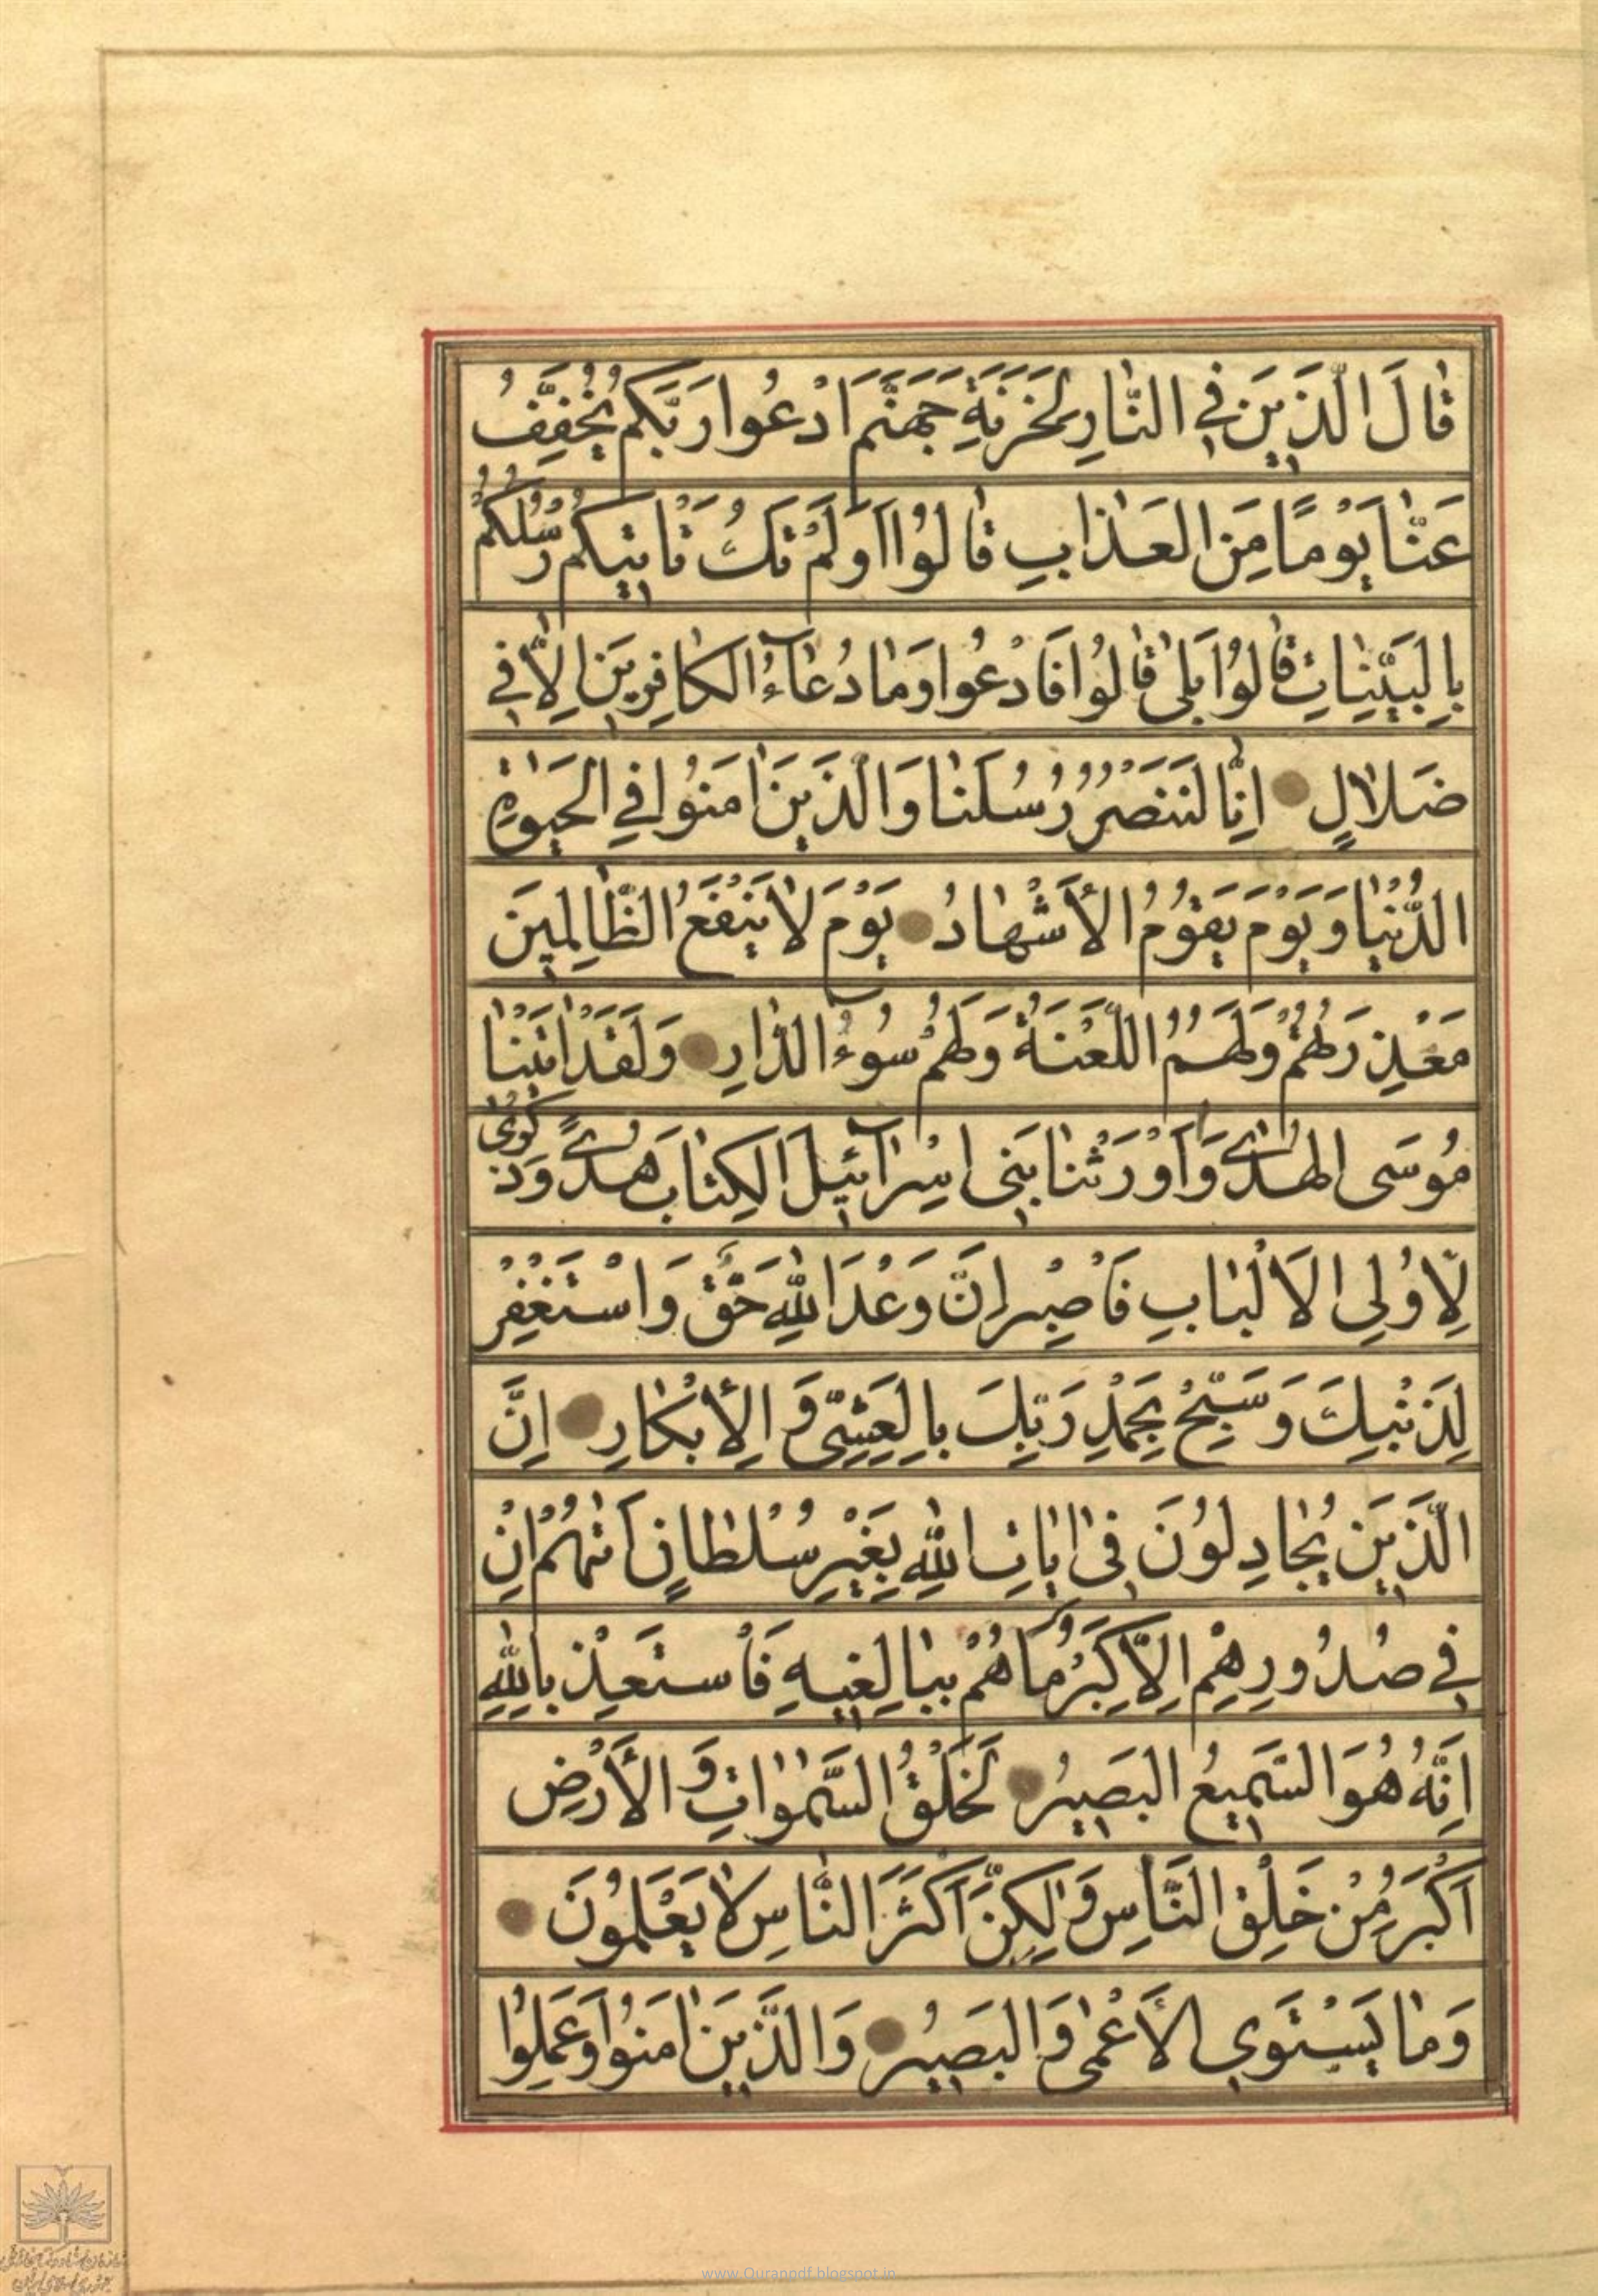 قَالَ الَّذِينَ فِي النَّارِ لِخَزَنَةِ جَهَنَّمَ ادْعُوا رَبَّكُمْ يُخَفِّفْ
عَنَّا يَوْمًا مِنَ الْعَذَابِ قَالُوا أَوَلَمْ تَكُ تَأْتِيكُمْ رُسُلُكُمْ
بِالْبَيِّنَاتِ قَالُوا بَلَىٰ قَالُوا فَادْعُوا وَمَا دُعَاءُ الْكَافِرِينَ إِلَّا فِي
ضَلَالٍ إِنَّا لَنَنْصُرُ رُسُلَنَا وَالَّذِينَ اٰمَنُوا فِي الْحَيٰوةِ
الدُّنْيَا وَيَوْمَ يَقُومُ الْأَشْهَادُ يَوْمَ لَا يَنْفَعُ الظَّالِمِينَ
مَعْذِرَتُهُمْ وَلَهُمُ اللَّعْنَةُ وَلَهُمْ سُوءُ الدَّارِ وَلَقَدْ اٰتَيْنَا
مُوسَى الْهُدٰى وَأَوْرَثْنَا بَنِي إِسْرَائِيلَ الْكِتَابَ هُدًى وَذِكْرٰى
لِأُولِي الْأَلْبَابِ فَاصْبِرْ إِنَّ وَعْدَ اللّٰهِ حَقٌّ وَاسْتَغْفِرْ
لِذَنْبِكَ وَسَبِّحْ بِحَمْدِ رَبِّكَ بِالْعَشِيِّ وَالْإِبْكَارِ إِنَّ
الَّذِينَ يُجَادِلُونَ فِي اٰيَاتِ اللّٰهِ بِغَيْرِ سُلْطَانٍ أَتٰهُمْ إِنْ
فِي صُدُورِهِمْ إِلَّا كِبْرٌ مَا هُمْ بِبَالِغِيهِ فَاسْتَعِذْ بِاللّٰهِ
إِنَّهُ هُوَ السَّمِيعُ الْبَصِيرُ لَخَلْقُ السَّمٰوَاتِ وَالْأَرْضِ
أَكْبَرُ مِنْ خَلْقِ النَّاسِ وَلٰكِنَّ أَكْثَرَ النَّاسِ لَا يَعْلَمُونَ
وَمَا يَسْتَوِي الْأَعْمٰى وَالْبَصِيرُ وَالَّذِينَ اٰمَنُوا وَعَمِلُوا
www.Quranpdf.blogspot.in